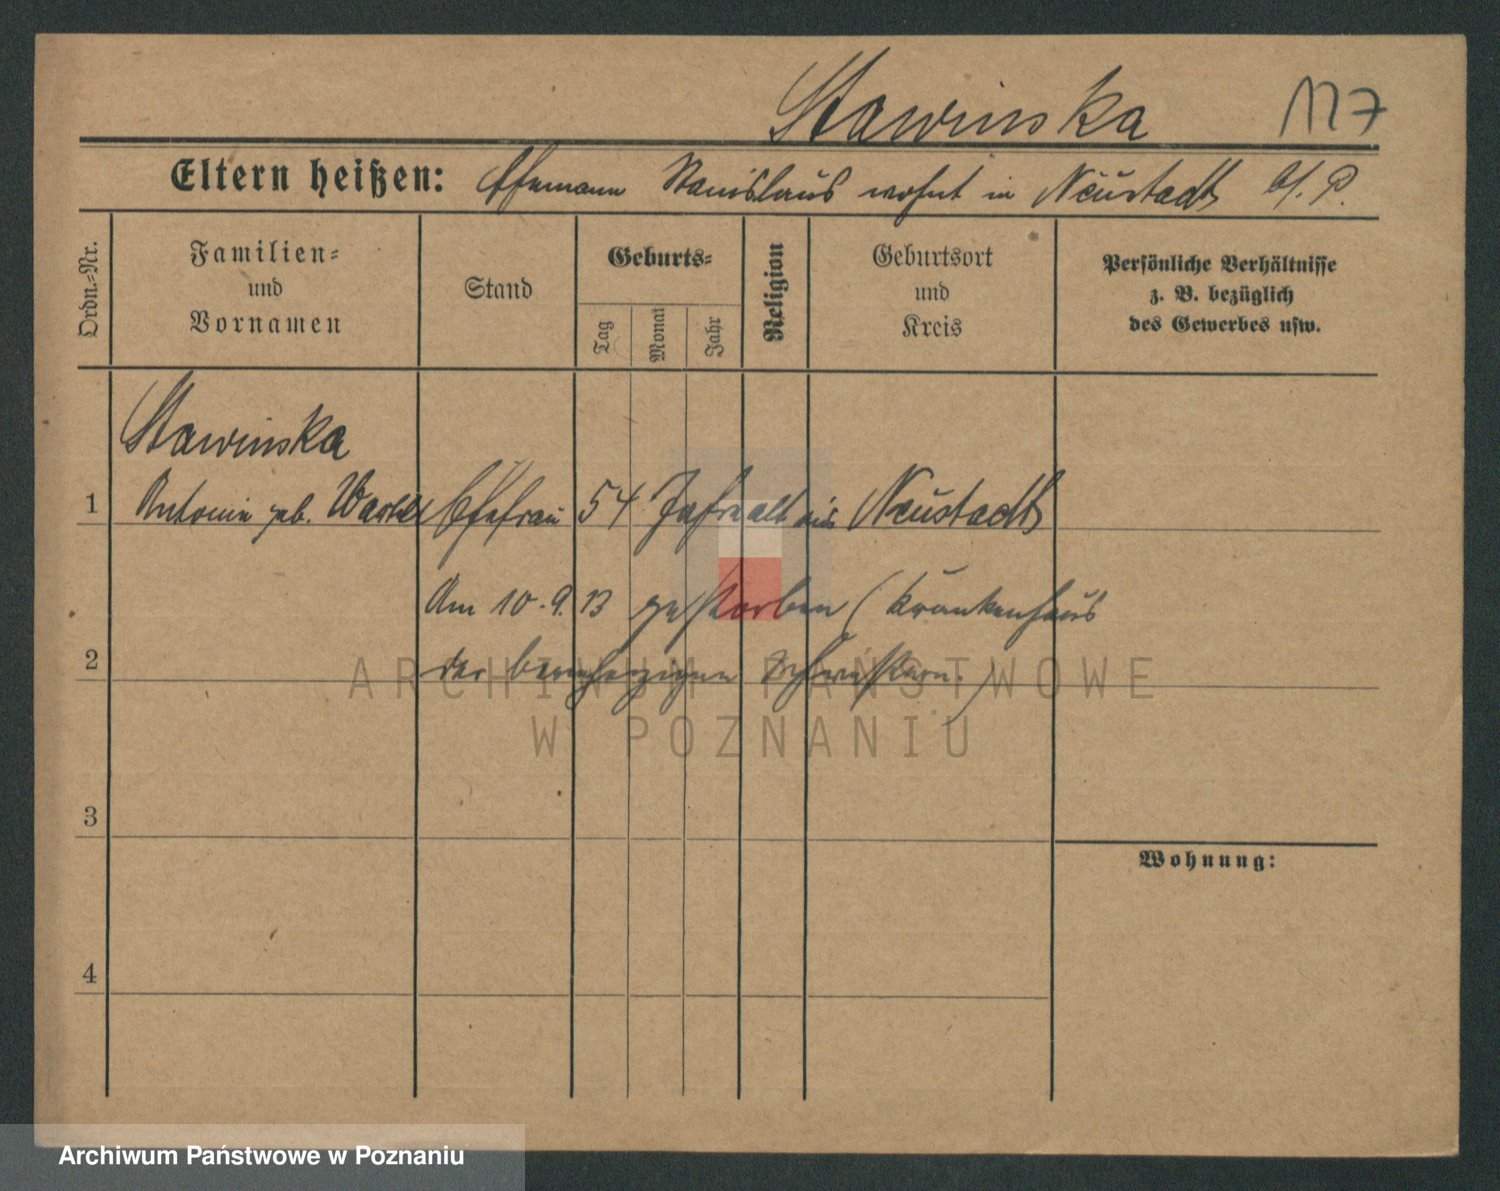 Stawinska 117
Eltern heißen: Ehemann Stanislaus wohnt in Neustadt b/. P.
Ordn.-Nr.
Familien-
und
Vornamen
Stand
Geburts-
Tag
Monat
Jahr
Religion
Geburtsort
und
Kreis
Persönliche Verhältnisse
z. B. bezüglich
des Gewerbes usw.
Stawinska
1 Antonie geb. Ehefrau 54 Jahre alt aus Neustadt
Am 10.9.13 gestorben (Krankenhaus
2 der barmherzigen Schwestern.)
ARCHIWUM PAŃSTWOWE
W POZNANIU
3
Wohnung:
4
Archiwum Państwowe w Poznaniu